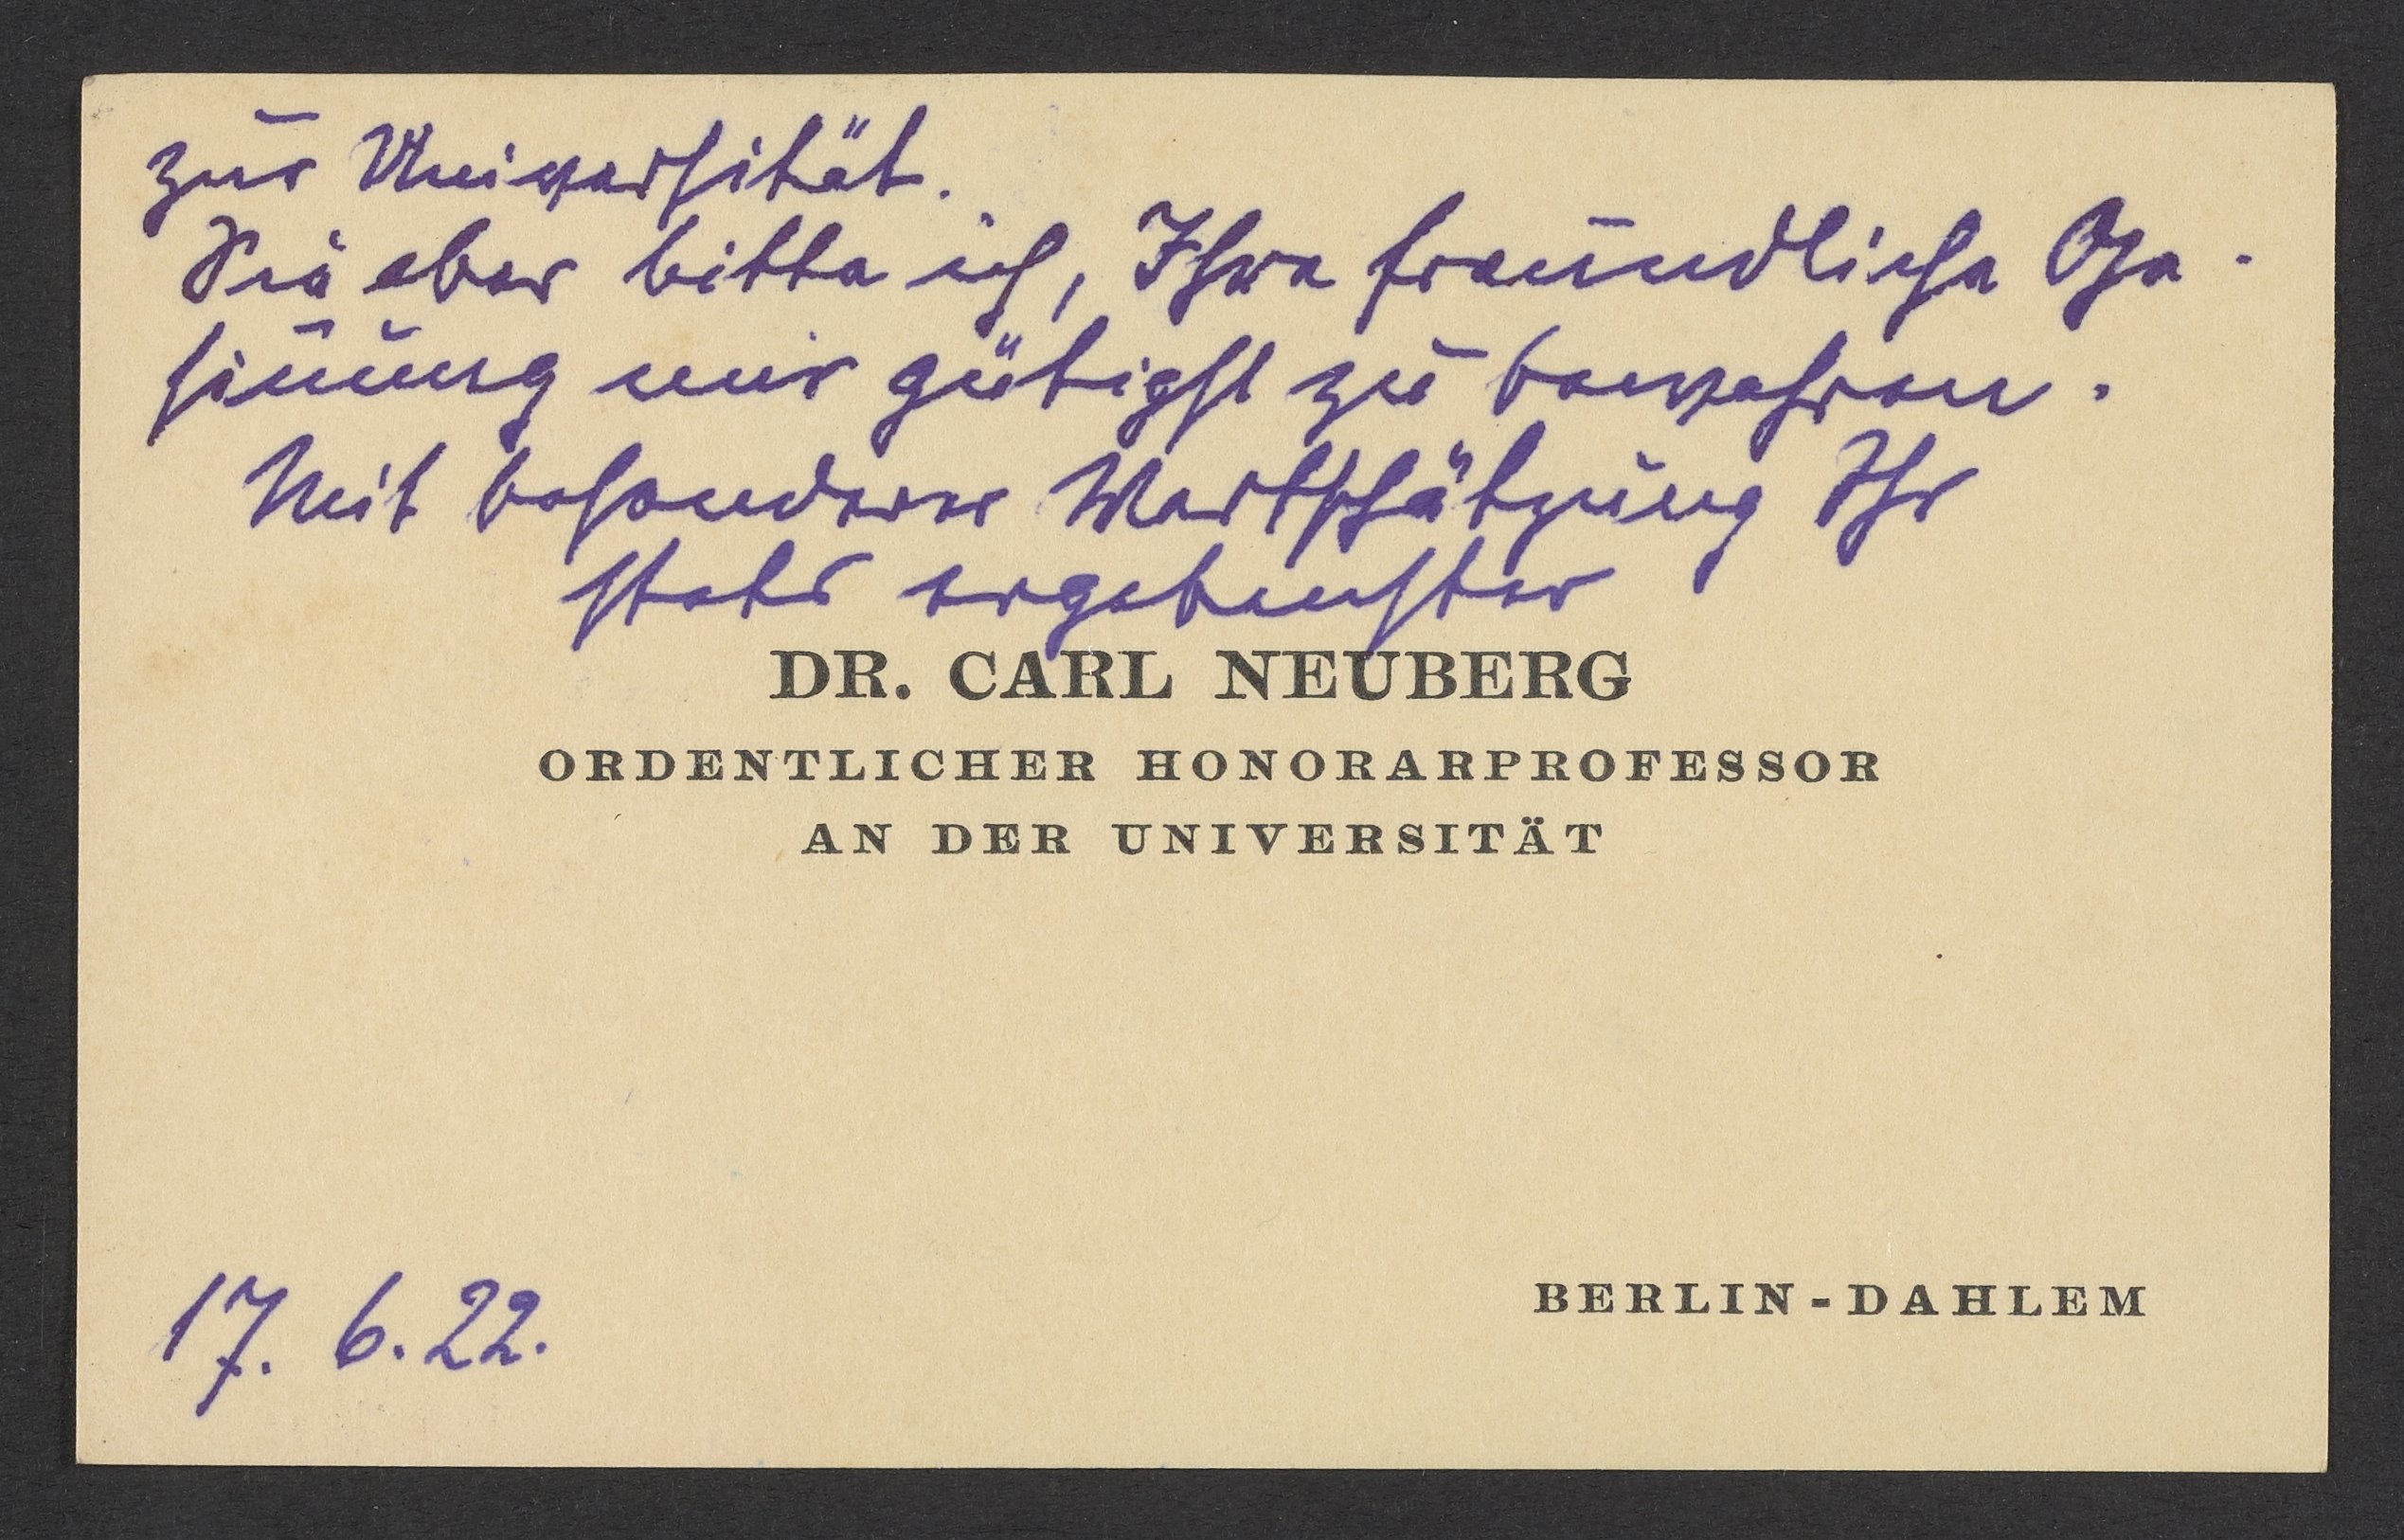 zur Universität.
Sie aber bitte ich, Ihre freundliche Ge-
sinnung mir gütigst zu bewahren.
Mit besonderer Wertschätzung Ihr
stets ergebenster
DR. CARL NEUBERG
ORDENTLICHER HONORARPROFESSOR
AN DER UNIVERSITÄT
17. 6. 22.
BERLIN-DAHLEM